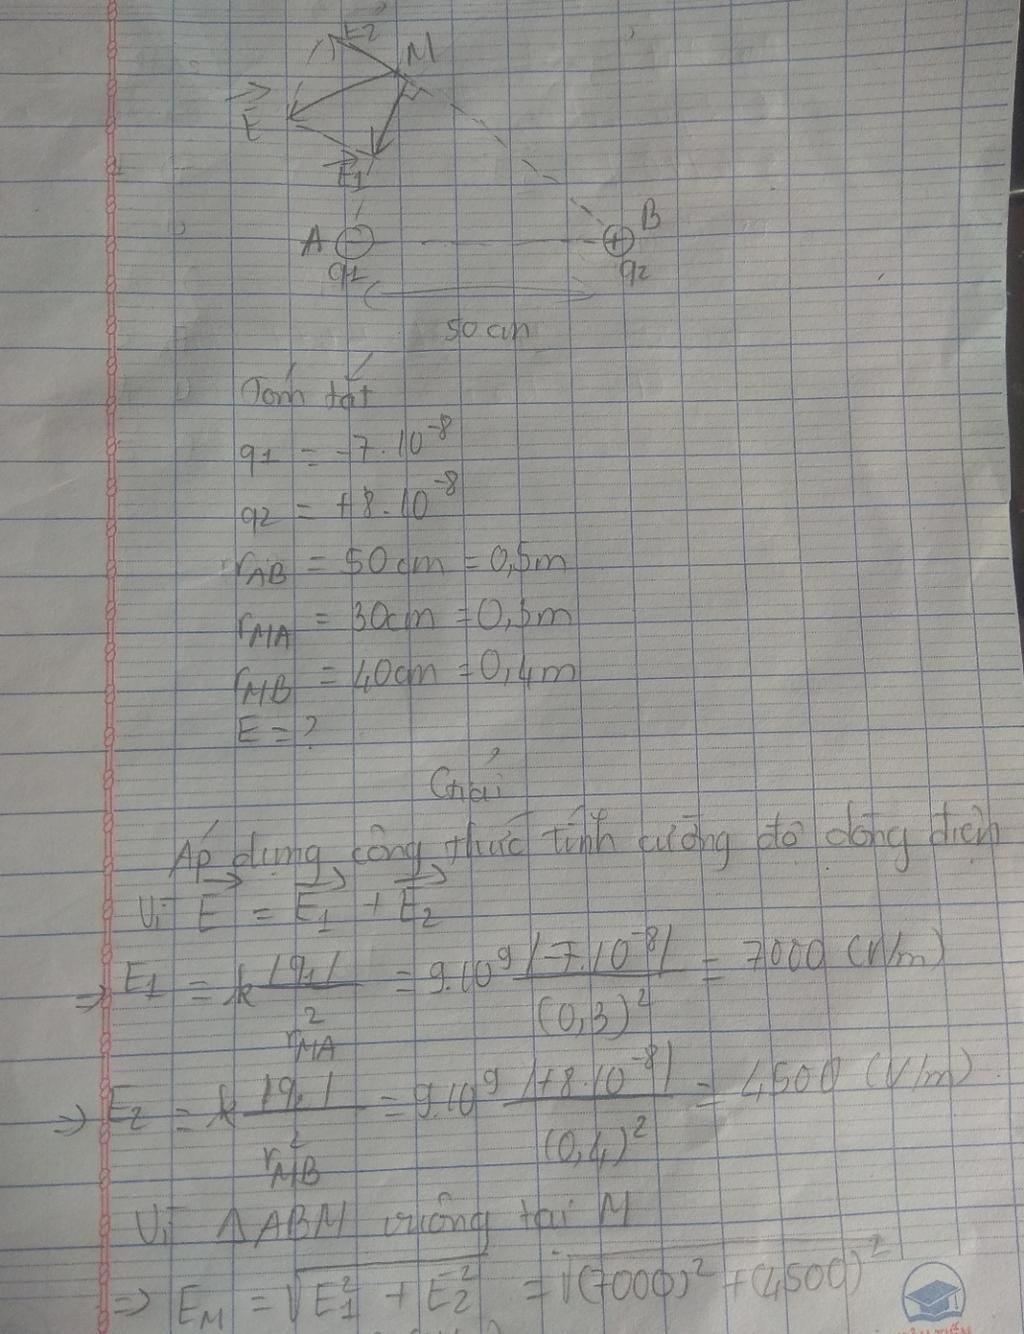 E2
M
E
E1
A
B
q1
q2
50 cm
Tóm tắt
q1 = -7.10^-8
q2 = +8.10^-8
rAB = 50 cm = 0,5m
rMA = 30cm = 0,3m
rMB = 40cm = 0,4m
E = ?
Giải
Áp dụng công thức tính cường độ dòng điện
Vì E = E1 + E2
=> E1 = k |q1| / r²MA = 9.10^9 |-7.10^-8| / (0,3)² = 7000 (V/m)
=> E2 = k / r²MB = 9.10^9 |+8.10^-8| / (0,4)² = 4500 (V/m)
Vì ΔABM vuông tại M
=> EM = √E1² + E2² = √(7000)² + (4500)²